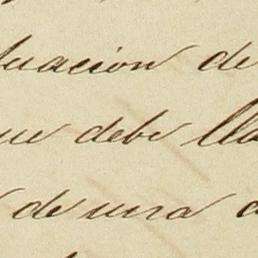 tuación de
ue debe lla
de una a